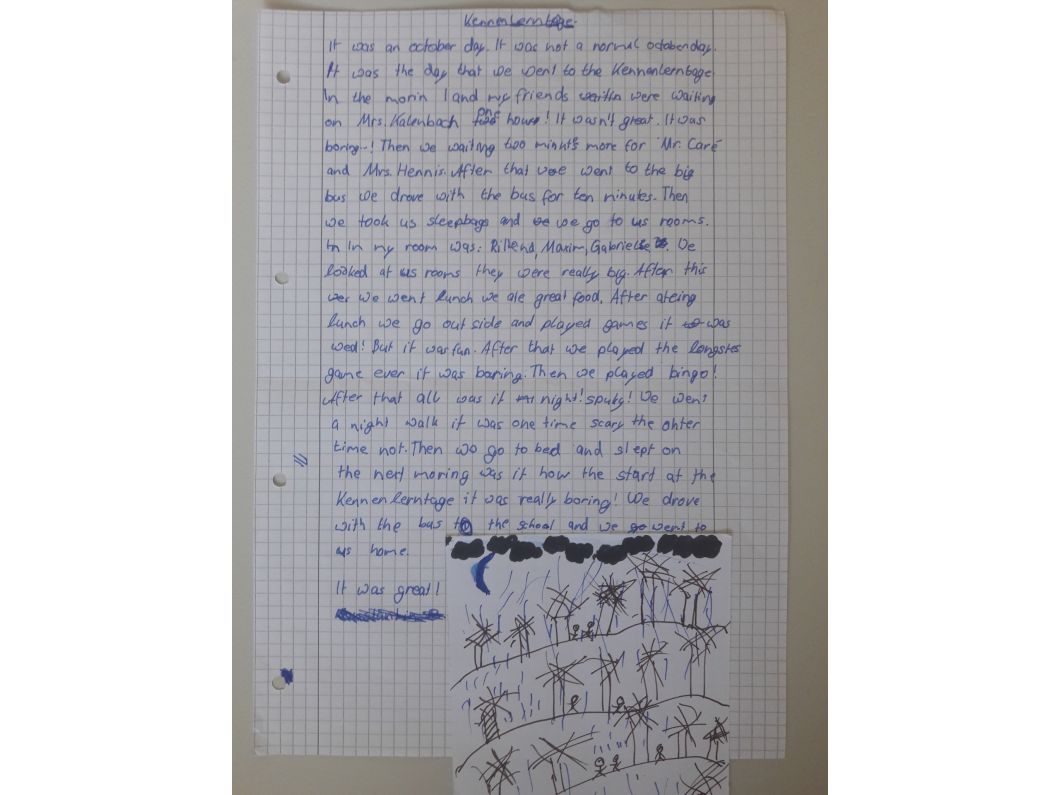 Kennenlerntage
It was an october day. It was not a normal october day.
It was the day that we went to the Kennenlerntage
In the morin I and my friends were waiting
on Mrs. Kalenbach one hour! It wasn't great. It was
boring! Then we waiting too minuts more for Mr. Caré
and Mrs. Hennis. After that we went to the big
bus we drove with the bus for ten minutes. Then
we took us sleepbags and we go to us rooms.
In my room was: Maxim, Gabriele. We
looked at us rooms they were really big. After this
we went lunch we ate great food. After ateing
lunch we go out side and played games it was
wed! But it was fun. After that we played the longstes
game ever it was boring. Then we played bingo!
After that all was it night! spuky! We went
a night walk it was one time scary the ohter
time not. Then we go to bed and slept on
the next moring was it how the start at the
Kennenlerntage it was really boring! We drove
with the bus to the school and we went to
us home.
It was great!